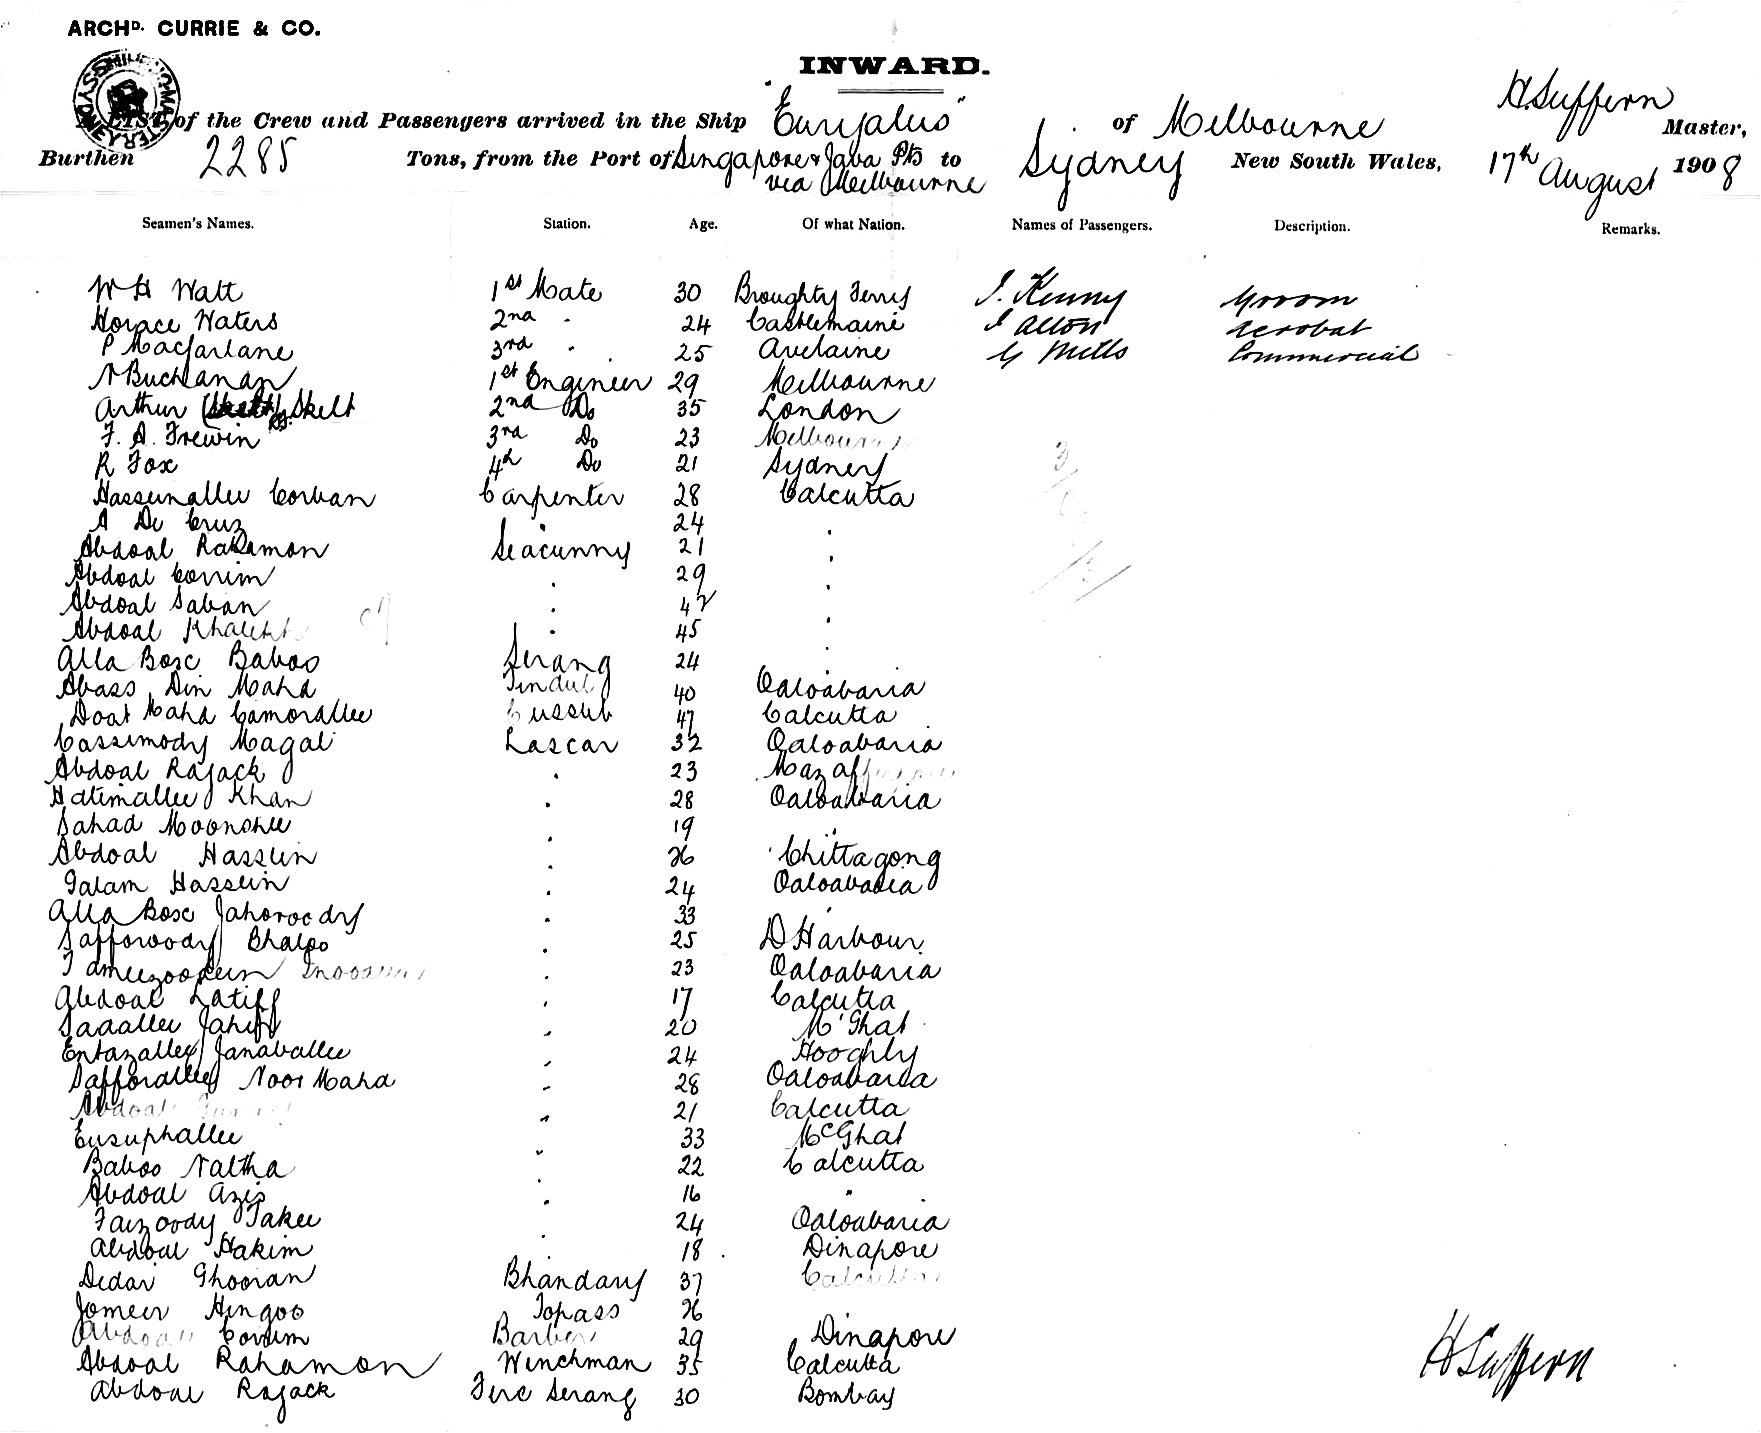 ARCHD. CURRIE & CO.
INWARD.
A LIST of the Crew and Passengers arrived in the Ship "Euryalus" of Melbourne H Suffern Master,
Burthen 2285 Tons, from the Port of Singapore & Java Pts via Melbourne to Sydney New South Wales, 17th August 1908
Seamen's Names. Station. Age. Of what Nation. Names of Passengers. Description. Remarks.
W H Watt 1st Mate 30 Broughty Ferry J. Kenny Groom
Horace Waters 2nd " 24 Castlemaine J Alton Acrobat
P Macfarlane 3rd " 25 G Mills Commercial
N Buchanan 1st Engineer 29 Melbourne
Arthur Skelt 2nd Do 35 London
F. A. Frewin 3rd Do 23 Melbourne
R Fox 4th Do 21 Sydney
Hasseinallee Corban Carpenter 28 Calcutta
A De Cruz " 24 "
Abdoal Rahamon Seacunny 21 "
Abdoal Corrim " 29 "
Abdoal Saban " 42 "
Abdoal Khalekh " 45 "
Alla Bosc Baboo Serang 24 "
Abass Din Maha Tindul 40 Oaloabaria
Doat Maha Camorallee Cussub 47 Calcutta
Cassimody Magal Lascar 32 Oaloabaria
Abdoal Rajack " 23
Hatimallee Khan " 28 Oaloabaria
Sahad Moonshee " 19 "
Abdoal Hassein " 26 Chittagong
Galam Hassein " 24 Oaloabaria
Alla Bosc Jahoroody " 33 "
Safforoody Bhaloo " 25 D Harbour
" 23 Oaloabaria
Abdoal Latiff " 17 Calcutta
Saaallee Jahiff " 20 M'Ghat
Entazallee Janaballee " 24 Hooghly
Safforallee Noor Maha " 28 Oaloabaria
Abdoal " 21 Calcutta
Eusuphallee " 33 McGhat
Baboo Naltha " 22 Calcutta
Abdoal Azis " 16 "
Faizoody Takee " 24 Oaloabaria
Abdoal Hakim " 18 Dinapore
Didar Ghooran Bhandary 37 Calcutta
Jomeer Hingoo Topass 26
Abdoal Corrim Barber 29 Dinapore
Abdoal Rahamon Winchman 35 Calcutta
Abdoal Rajack Fire Serang 30 Bombay
H Suffern